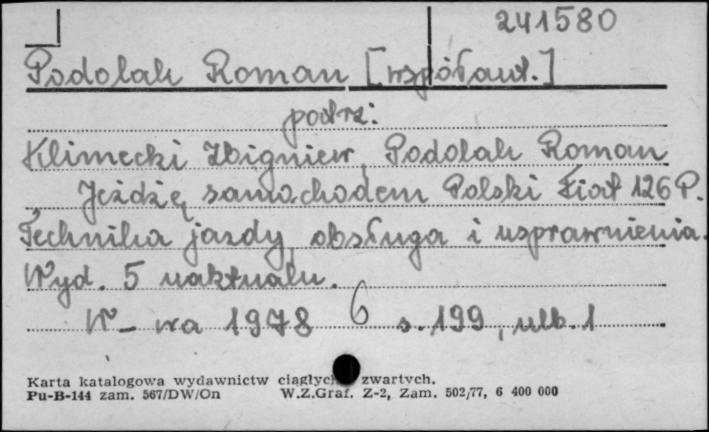 241580
Podolak Roman [współaut.]
patrz:
Klimecki Zbigniew, Podolak Roman
Jeżdżę samochodem Polski Fiat 126 P.
Technika jazdy, obsługa i usprawnienia.
Wyd. 5 uaktualn.
W-wa 1978 6 s. 199, nlb. 1
Karta katalogowa wydawnictw ciągłych zwartych.
Pu-B-144 zam. 567/DW/On W.Z.Graf. Z-2, Zam. 502/77, 6 400 000